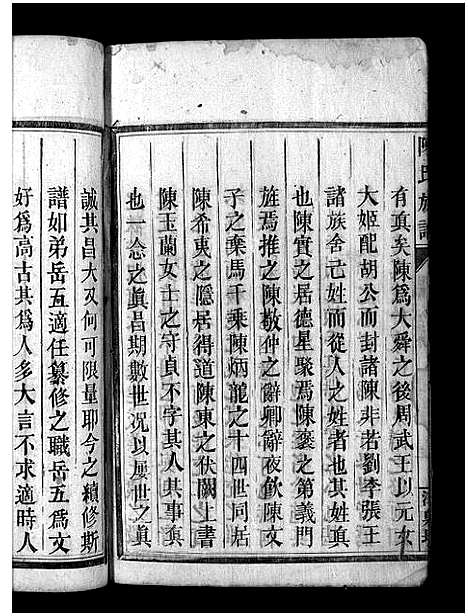 陳氏族譜
有真矣陳爲大舜之後周武王以元女
大姬配胡公而封諸陳非若劉李張王
諸族舍己姓而從人之姓者也其姓真
也陳實之居德星聚焉陳褒之第義門
旌焉推之陳敬仲之辭卿辭夜飲陳文
子之棄馬千乘陳炳龍之十四世同居
陳希夷之隱居得道陳東之伏闕上書
陳玉蘭女士之守貞不字其人其事真
也一念之真昌期數世况以屢世之真
誠其昌大又何可限量耶今之續修斯
譜如弟岳五適任纂修之職岳五爲文
好爲高古其爲人多大言不求適時人